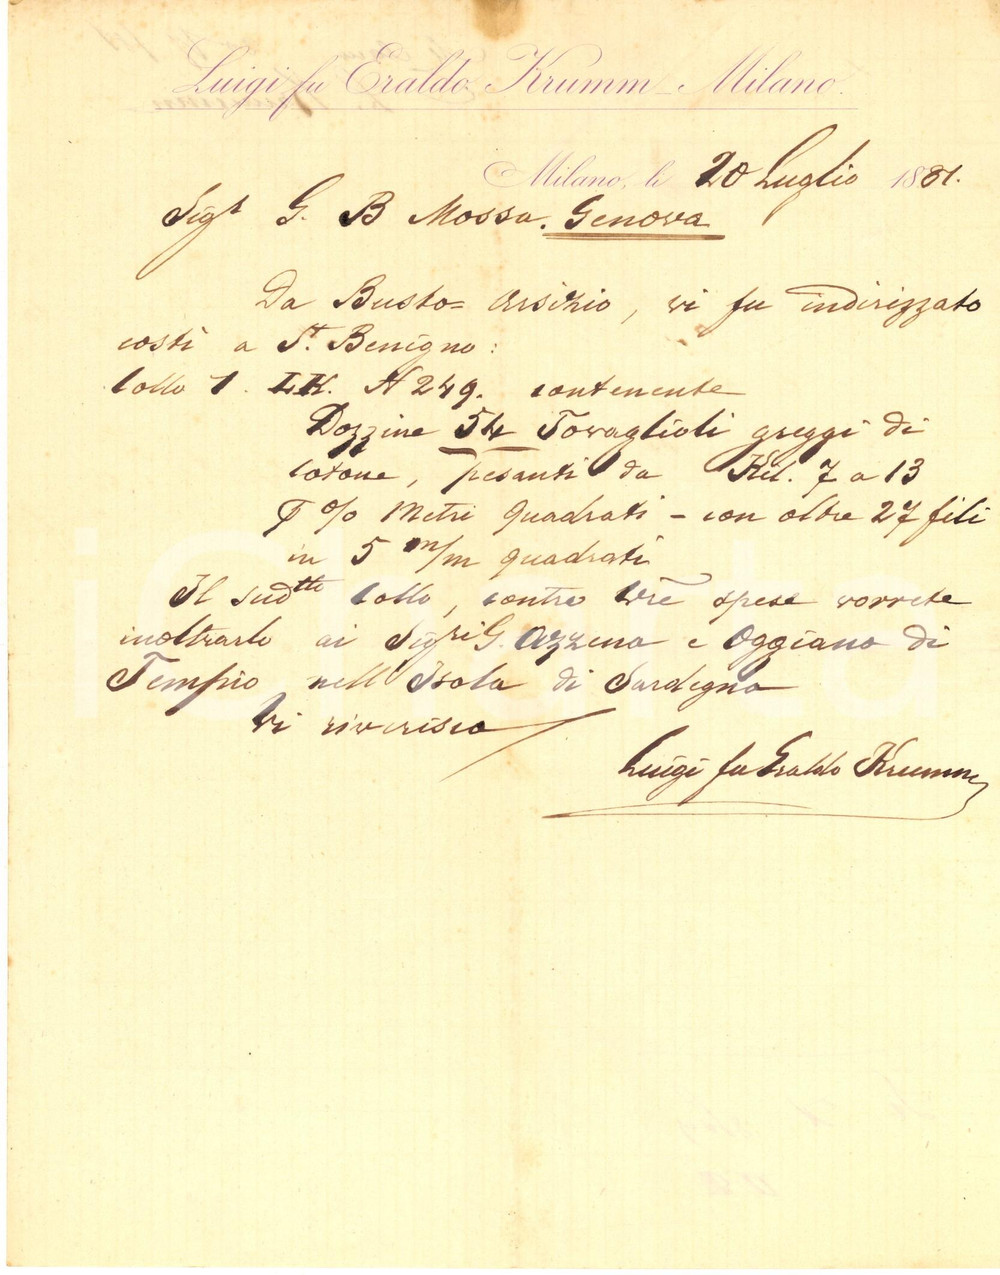 Luigi fu Eraldo Krumm - Milano.
Milano, li 20 Luglio 1881.
Sigr G. B Mossa. Genova
Da Busto= Arsizio, vi fu indirizzato
costi a St. Benigno:
Collo 1. LK. N 249. contenente
Dozzine 54 Tovaglioli greggi di
cotone, pesanti da Kil. 7 a 13
% Metri quadrati - con oltre 27 fili
in 5 m/m quadrati
Il sudtto Collo, contro Vre spese vorrete
inoltrarlo ai Sigri G. Azzena e Oggiano di
Tempio nell'Isola di Sardegna
Vi riverisco
Luigi fu Eraldo Krumm